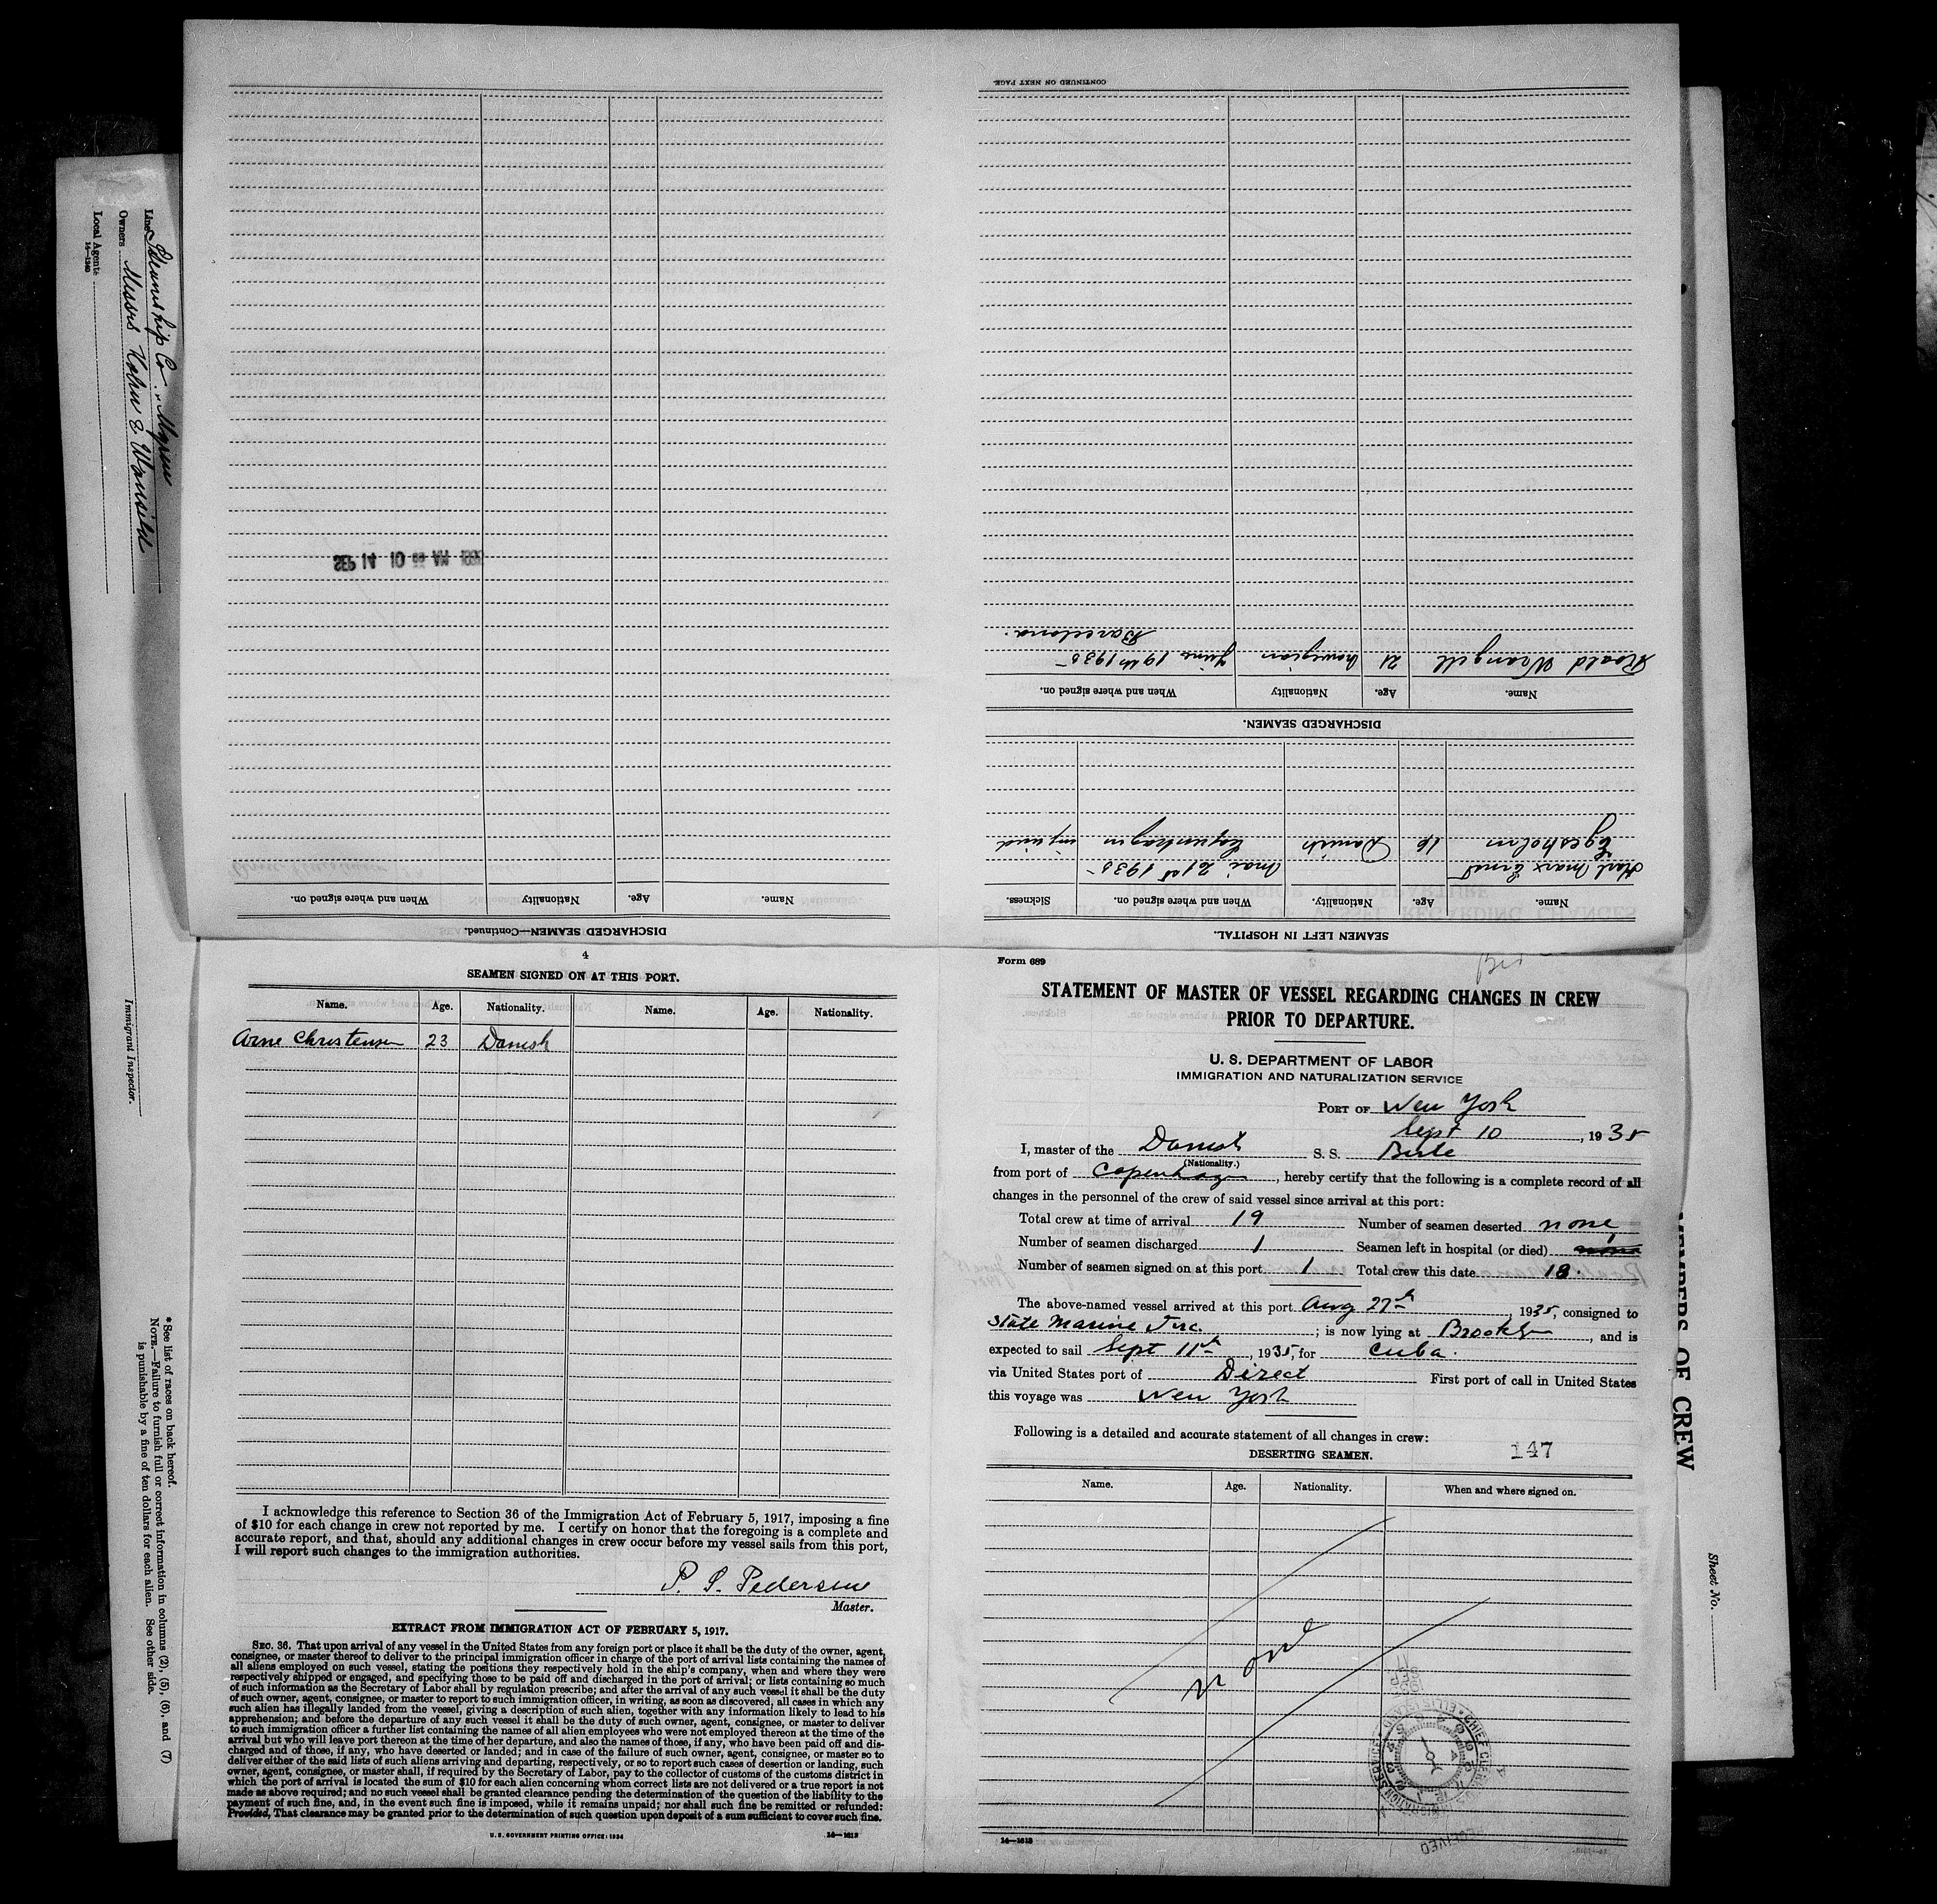 Line Steamship Co.
Owners Messrs
Local Agents
14—1240
Immigrant Inspector.
* See list of races on back hereof.
NOTE.—Failure to furnish full or correct information in columns (2), (5), (6), and (7)
is punishable by a fine of ten dollars for each alien. See other side.
DISCHARGED SEAMEN—Continued.
Name. Age. Nationality When and where signed on.
SEP 14 10 AM
SEAMEN LEFT IN HOSPITAL.
Name. Age. Nationality. When and where signed on. Sickness.
Karl Marx Ernst 16 Danish Mai 21st 1935 injured
Egesholm Copenhagen
DISCHARGED SEAMEN.
Name. Age. Nationality When and where signed on.
Roald Wrangell 21 Norwegian June 19th 1935
Barcelona.
CONTINUED ON NEXT PAGE.
4
SEAMEN SIGNED ON AT THIS PORT.
Name. Age. Nationality. Name. Age. Nationality.
Arne Christensen 23 Danish
I acknowledge this reference to Section 36 of the Immigration Act of February 5, 1917, imposing a fine
of $10 for each change in crew not reported by me. I certify on honor that the foregoing is a complete and
accurate report, and that, should any additional changes in crew occur before my vessel sails from this port,
I will report such changes to the immigration authorities.
P. S. Pedersen
Master.
EXTRACT FROM IMMIGRATION ACT OF FEBRUARY 5, 1917.
SEC. 36. That upon arrival of any vessel in the United States from any foreign port or place it shall be the duty of the owner, agent,
consignee, or master thereof to deliver to the principal immigration officer in charge of the port of arrival lists containing the names of
all aliens employed on such vessel, stating the positions they respectively hold in the ship's company, when and where they were
respectively shipped or engaged, and specifying those to be paid off and discharged in the port of arrival; or lists containing so much
of such information as the Secretary of Labor shall by regulation prescribe; and after the arrival of any such vessel it shall be the duty
of such owner, agent, consignee, or master to report to such immigration officer, in writing, as soon as discovered, all cases in which any
such alien has illegally landed from the vessel, giving a description of such alien, together with any information likely to lead to his
apprehension; and before the departure of any such vessel it shall be the duty of such owner, agent, consignee, or master to deliver
to such immigration officer a further list containing the names of all alien employees who were not employed thereon at the time of the
arrival but who will leave port thereon at the time of her departure, and also the names of those, if any, who have been paid off and dis-
charged and of those, if any, who have deserted or landed; and in case of the failure of such owner, agent, consignee, or master so to
deliver either of the said lists of such aliens arriving and departing, respectively, or so to report such cases of desertion or landing, such
owner, agent, consignee, or master shall, if required by the Secretary of Labor, pay to the collector of customs of the customs district in
which the port of arrival is located the sum of $10 for each alien concerning whom correct lists are not delivered or a true report is not
made as above required; and no such vessel shall be granted clearance pending the determination of the question of the liability to the
payment of such fine, and, in the event such fine is imposed, while it remains unpaid; nor shall such fine be remitted or refunded:
Provided, That clearance may be granted prior to the determination of such question upon deposit of a sum sufficient to cover such fine.
U. S. GOVERNMENT PRINTING OFFICE: 1934 14—1613
Form 689
STATEMENT OF MASTER OF VESSEL REGARDING CHANGES IN CREW
PRIOR TO DEPARTURE.
U. S. DEPARTMENT OF LABOR
IMMIGRATION AND NATURALIZATION SERVICE
PORT OF New York
Sept 10, 1935
I, master of the Danish S. S. Birte
(Nationality.)
from port of Copenhagen, hereby certify that the following is a complete record of all
changes in the personnel of the crew of said vessel since arrival at this port:
Total crew at time of arrival 19 Number of seamen deserted none
Number of seamen discharged 1 Seamen left in hospital (or died) none 1
Number of seamen signed on at this port 1 Total crew this date 18.
The above-named vessel arrived at this port Aug 27th, 1935, consigned to
State Marine Inc; is now lying at Brooklyn, and is
expected to sail Sept 11th, 1935, for Cuba.
via United States port of Direct First port of call in United States
this voyage was New York
Following is a detailed and accurate statement of all changes in crew:
DESERTING SEAMEN. 147
Name. Age. Nationality. When and where signed on.
None
14—1613
RECEIVED
MEMBERS OF CREW
Sheet No.